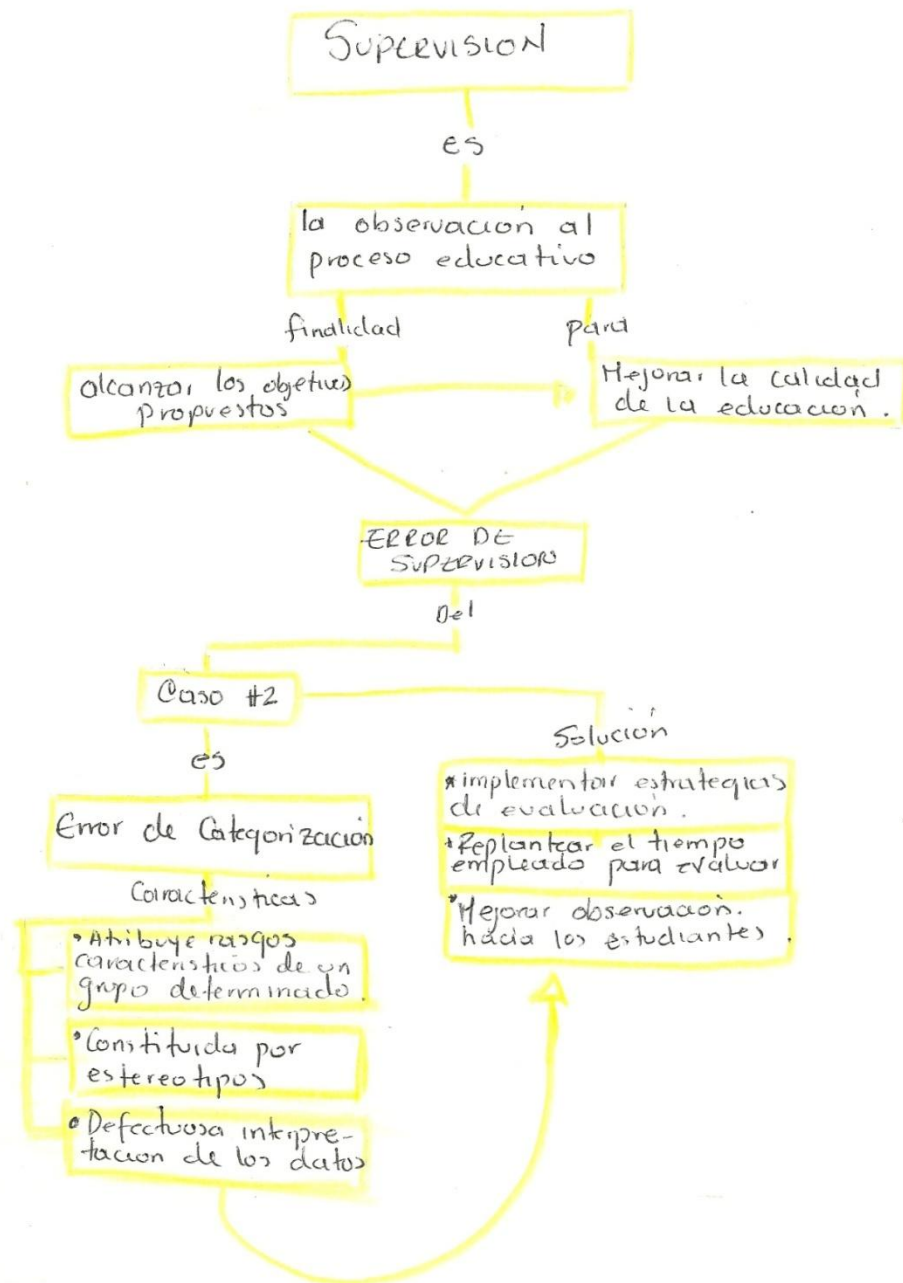 SUPERVISION
es
la observación al
proceso educativo
finalidad
para
alcanzar los objetivos
propuestos
Mejorar la calidad
de la educación.
ERROR DE
SUPERVISION
Del
Caso #2
es
Error de Categorización
Características
• Atribuye rasgos
característicos de un
grupo determinado.
• Constituida por
estereotipos
• Defectuosa interpre-
tacion de los datos
Solución
* implementar estrategias
de evaluación.
* Replantear el tiempo
empleado para evaluar
* Mejorar observación.
hacia los estudiantes.